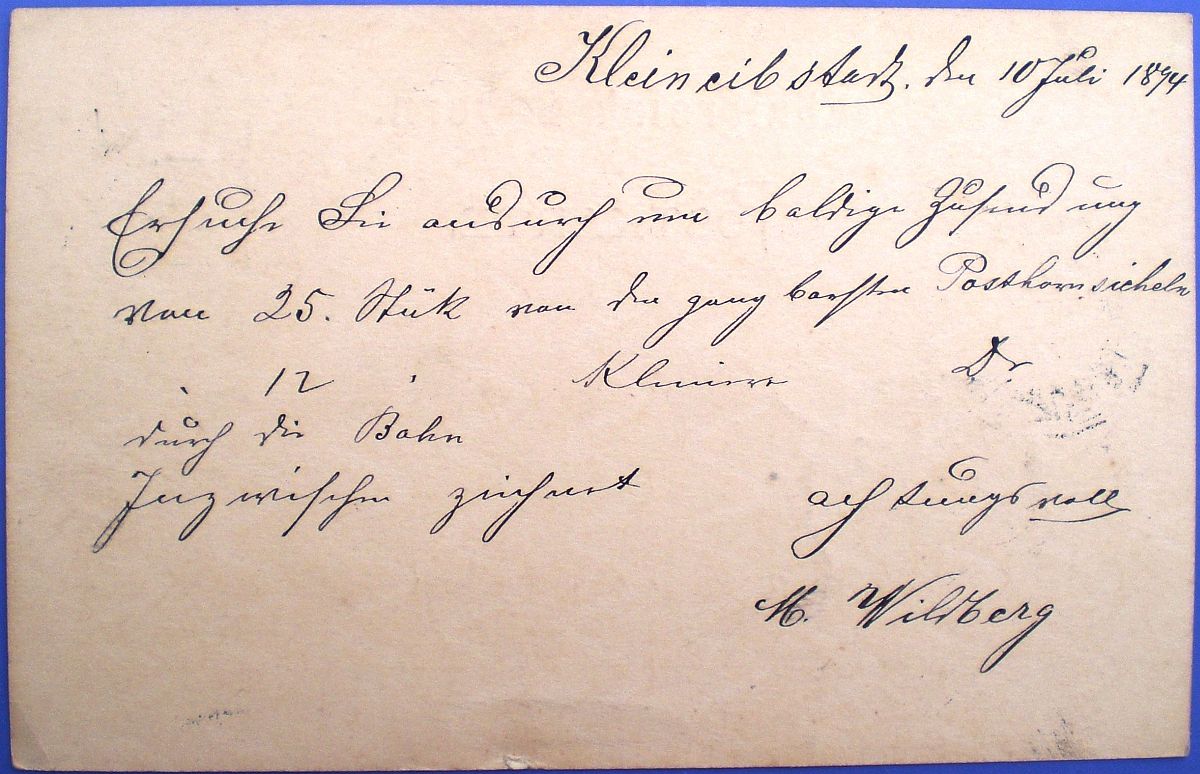 Kleineibstadt. den 10 Juli 1894
Ersuche Sie andurch um baldige Zusendung
von 25. Stük von den gangbarsten Posthornsicheln
„ 12 „ Kleinere Dr
durch die Bahn
Inzwischen zeichnet achtungsvoll
M. Wildberg